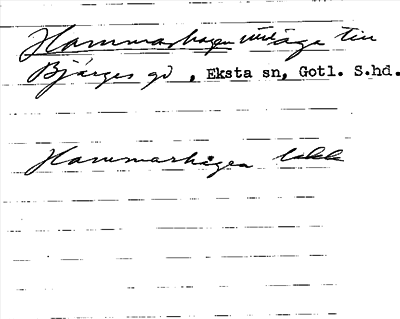 Hammarhagen utläga till
Bjärges gd, Eksta sn, Gotl. S.hd.
Hammarhagen